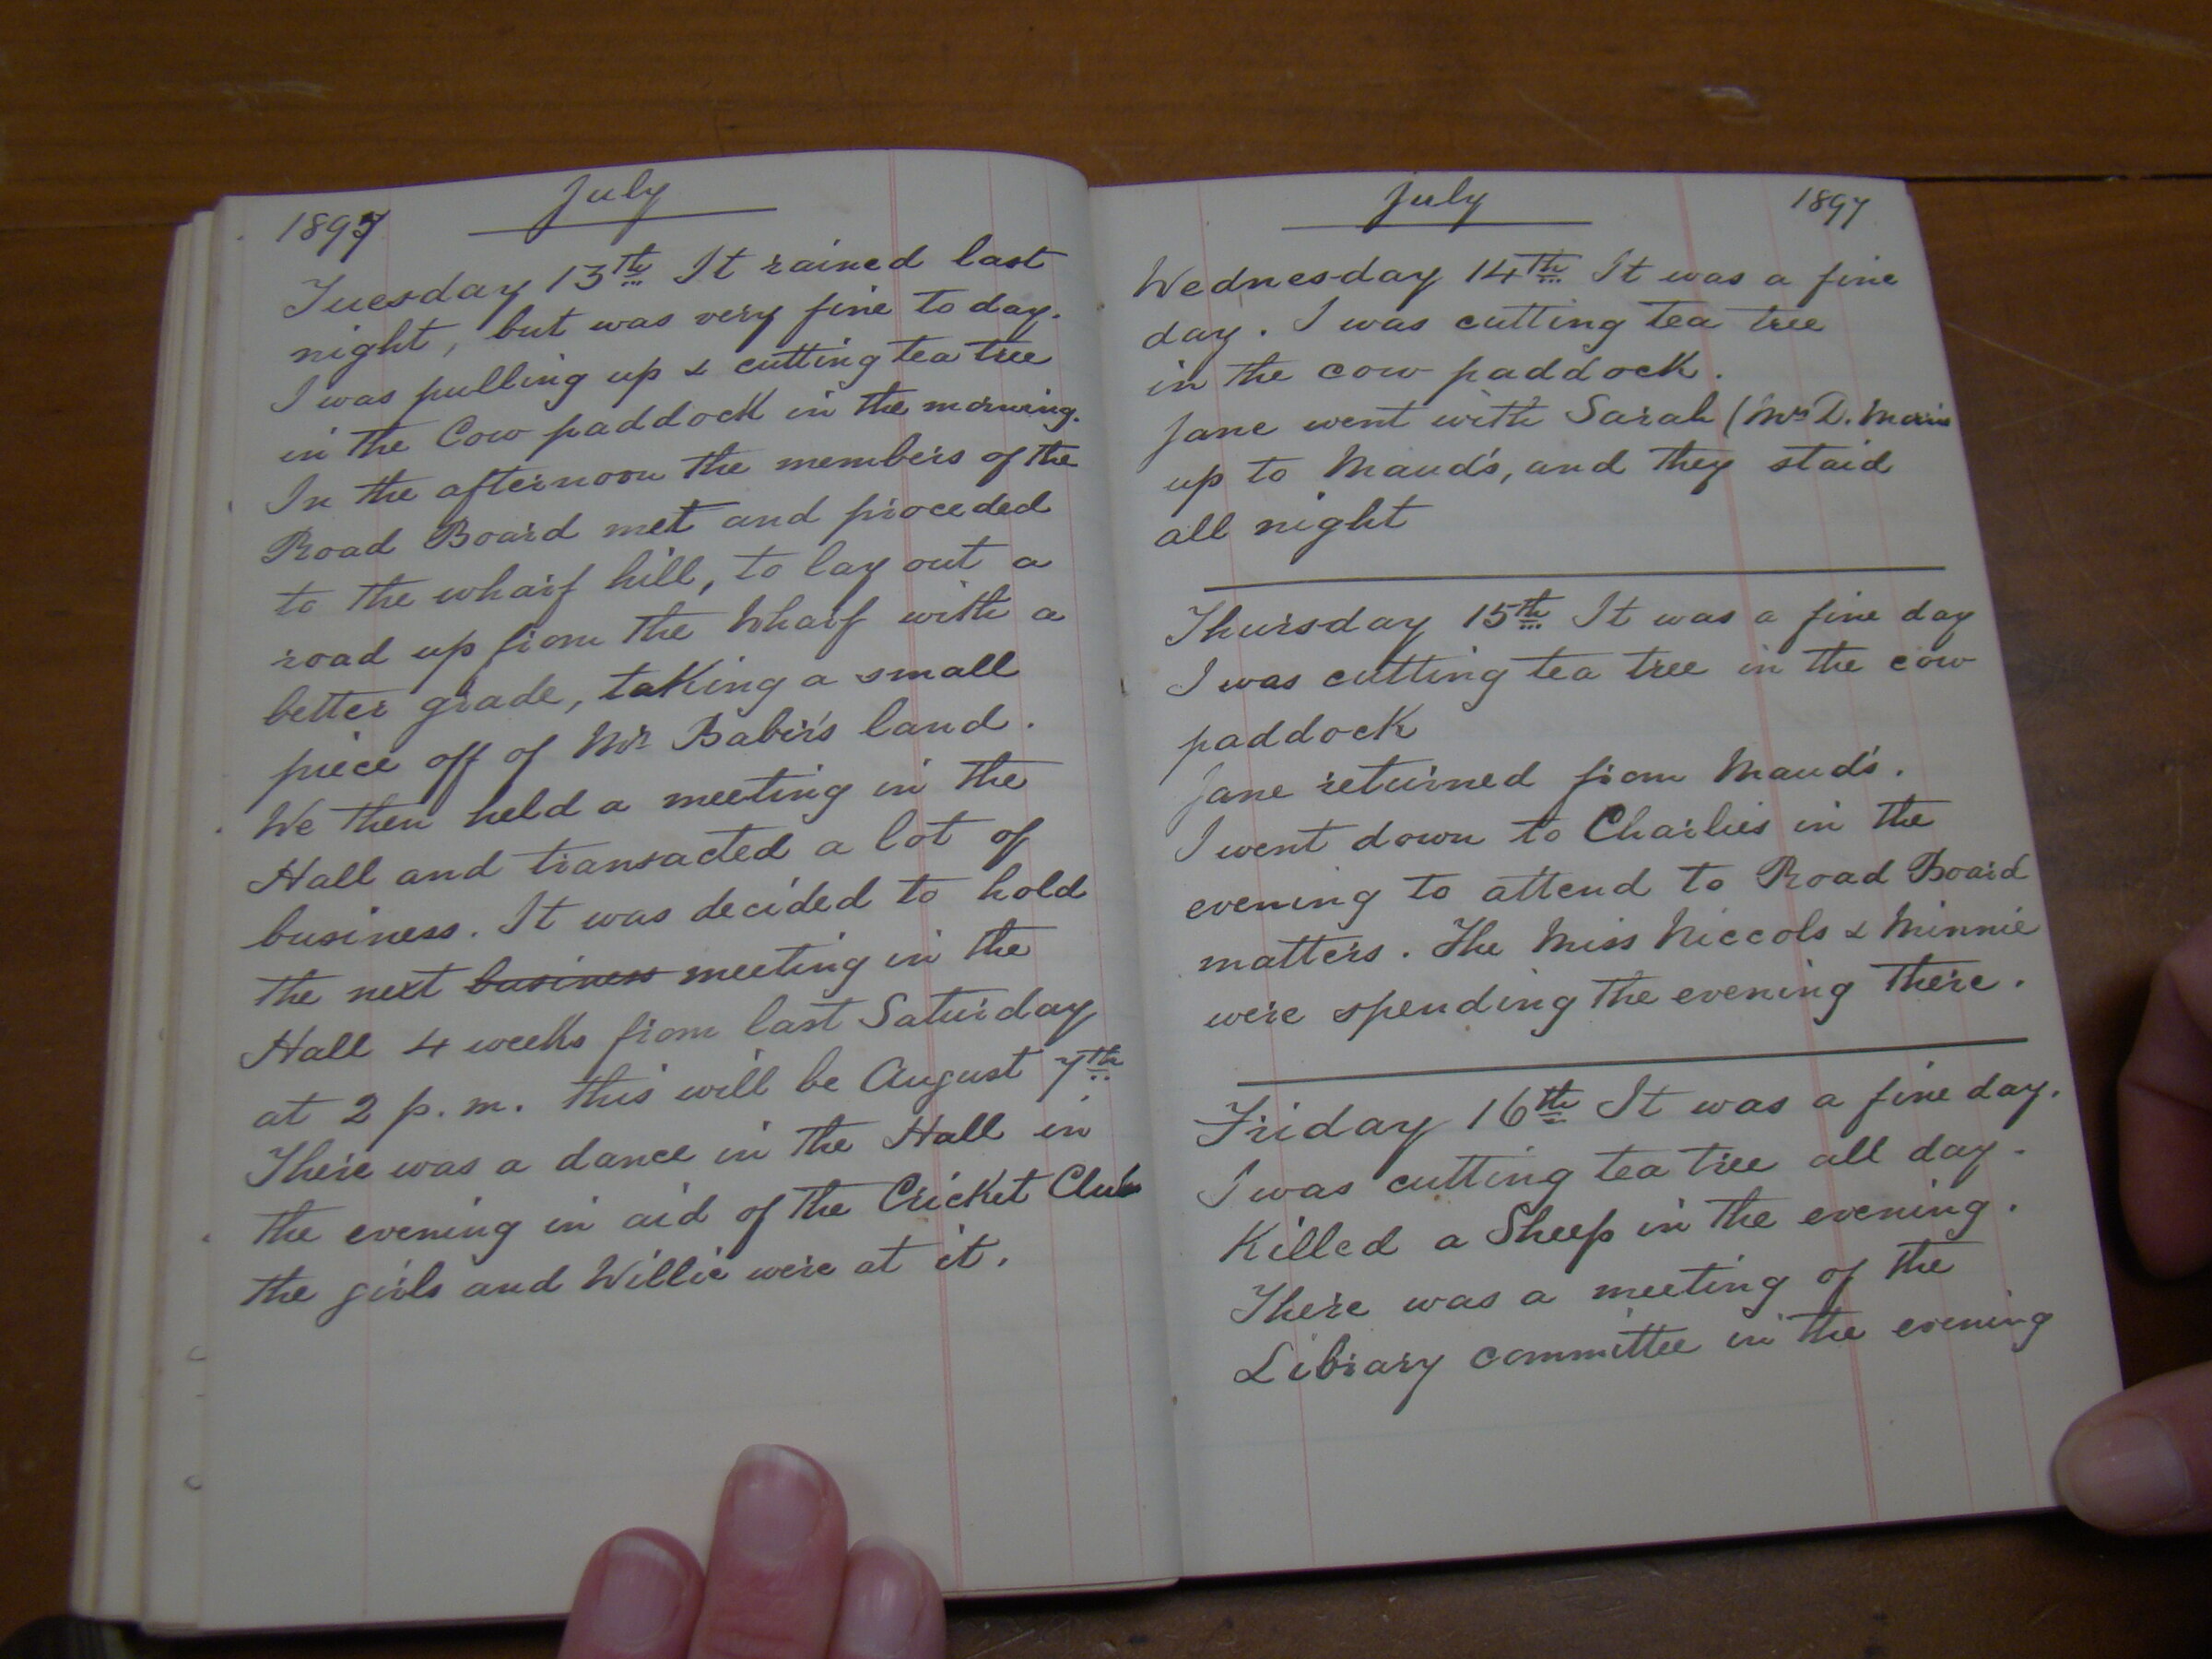 1897
July
Tuesday 13th It rained last
night, but was very fine to day.
I was pulling up & cutting tea tree
in the Cow paddock in the morning.
In the afternoon the members of the
Road Board met and proceded
to the wharf hill, to lay out a
road up from the Wharf with a
better grade, taking a small
piece off of Mr Babir's land.
We then held a meeting in the
Hall and transacted a lot of
business. It was decided to hold
the next business meeting in the
Hall 4 weeks from last Saturday
at 2 p.m. this will be August 7th
There was a dance in the Hall in
the evening in aid of the Cricket Club
the girls and Willie were at it.
July
1897
Wednesday 14th It was a fine
day. I was cutting tea tree
in the cow paddock.
Jane went with Sarah (Mrs D. Morris
up to Maud's, and they staid
all night
Thursday 15th It was a fine day
I was cutting tea tree in the cow
paddock
Jane returned from Maud's.
I went down to Charlies in the
evening to attend to Road Board
matters. The Miss Niccols & Minnie
were spending the evening there.
Friday 16th It was a fine day.
I was cutting tea tree all day.
Killed a Sheep in the evening.
There was a meeting of the
Library committee in the evening